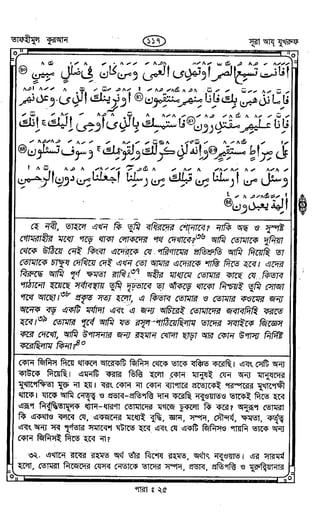 তাফহীমুল কুরআন ১১৭ সূরা আয্ যুখরুফ
أَفَأَنْتَ تُسْمِعُ الصُّمَّ أَوْ تَهْدِي الْعُمْيَ وَمَنْ كَانَ فِي ضَلَلٍ مُّبِينٍ ۝
فَإِمَّا نَذْهَبَنَّ بِكَ فَإِنَّا مِنْهُمْ مُّنْتَقِمُونَ ۝ أَوْ نُرِيَنَّكَ الَّذِي وَعَدْنٰهُمْ
فَإِنَّا عَلَيْهِمْ مُّقْتَدِرُونَ ۝ فَاسْتَمْسِكْ بِالَّذِي أُوحِيَ إِلَيْكَ ۚ إِنَّكَ
عَلَىٰ صِرَاطٍ مُّسْتَقِيمٍ ۝ وَإِنَّهُ لَذِكْرٌ لَّكَ وَلِقَوْمِكَ ۚ وَسَوْفَ تُسْئَلُونَ ۝
وَسْئَلْ مَنْ أَرْسَلْنَا مِنْ قَبْلِكَ مِنْ رُّسُلِنَا أَجَعَلْنَا مِنْ دُونِ الرَّحْمٰنِ
اٰلِهَةً يُّعْبَدُونَ ۝
হে নবী, তাহলে এখন কি তুমি বধিরদের শোনাবে? নাকি অন্ধ ও সুস্পষ্ট
গোমরাহীর মধ্যে পড়ে থাকা লোকদের পথ দেখাবে?৩৬ আমি তোমাকে দুনিয়া
থেকে উঠিয়ে নেই কিংবা এদেরকে যে পরিণামের প্রতিশ্রুতি আমি দিয়েছি তা
তোমাকে চাক্ষুষ দেখিয়ে দেই এখন তো আমার এদেরকে শাস্তি দিতে হবে। এদের
বিরুদ্ধে আমি পূর্ণ ক্ষমতা রাখি।৩৭ অহীর মাধ্যমে তোমার কাছে যে কিতাব
পাঠানো হয়েছে সর্বাবস্থায় তুমি দৃঢ়ভাবে তা আঁকড়ে থাকো নিশ্চয়ই তুমি সোজা
পথে আছো।৩৮ প্রকৃত সত্য হলো, এ কিতাব তোমার ও তোমার কওমের জন্য
অনেক বড় একটি মর্যাদা এবং এ জন্য অচিরেই তোমাদের জবাবদিহি করতে
হবে।৩৯ তোমার পূর্বে আমি যত রসূল পাঠিয়েছিলাম তাদের সবাইকে জিজ্ঞেস
করে দেখো, আমি উপাসনার জন্য রহমান খোদা ছাড়া আর কোন উপাস্য নির্দিষ্ট
করেছিলাম কিনা?৪০
কোন জিনিস দিয়ে থাকলে আরেকটি জিনিস থেকে তাকে বঞ্চিত করেছি। এবং সেটি অন্য
কাউকে দিয়েছি। এমনটি করার ভিত্তি হলো কোন মানুষই যেন অন্য মানুষদের
মুখাপেক্ষিতা মুক্ত না হয়। বরং কোন না কোন ব্যাপারে প্রত্যেকেই পরস্পরের মুখাপেক্ষী
থাকে। যাকে আমি নেতৃত্ব ও প্রভাব-প্রতিপত্তি দান করেছি নবুওয়াতও তাকেই দিতে হবে
এরূপ নির্বুদ্ধিতামূলক ধ্যান-ধারণা তোমাদের মগজে ঢুকলো কি করে? অনুরূপ তোমরা
কি একথাও বলবে যে, একজনের মধ্যেই বুদ্ধি, জ্ঞান, সম্পদ, সৌন্দর্য, ক্ষমতা, কর্তৃত্ব
এবং অন্য সব পূর্ণতার সমাবেশ ঘটাতে হবে এবং যে একটি জিনিসও পায়নি তাকে অন্য
কোন জিনিসই দিতে হবে না?
৩২. এখানে রবের রহমত অর্থ তাঁর বিশেষ রহমত, অর্থাৎ নবুওয়াত। এর সারমর্ম
হলো, তোমরা নিজেদের যেসব নেতাকে তাদের সম্পদ, প্রভাব, প্রতিপত্তি ও মুরুব্বিয়ানার
পারা ঃ ২৫